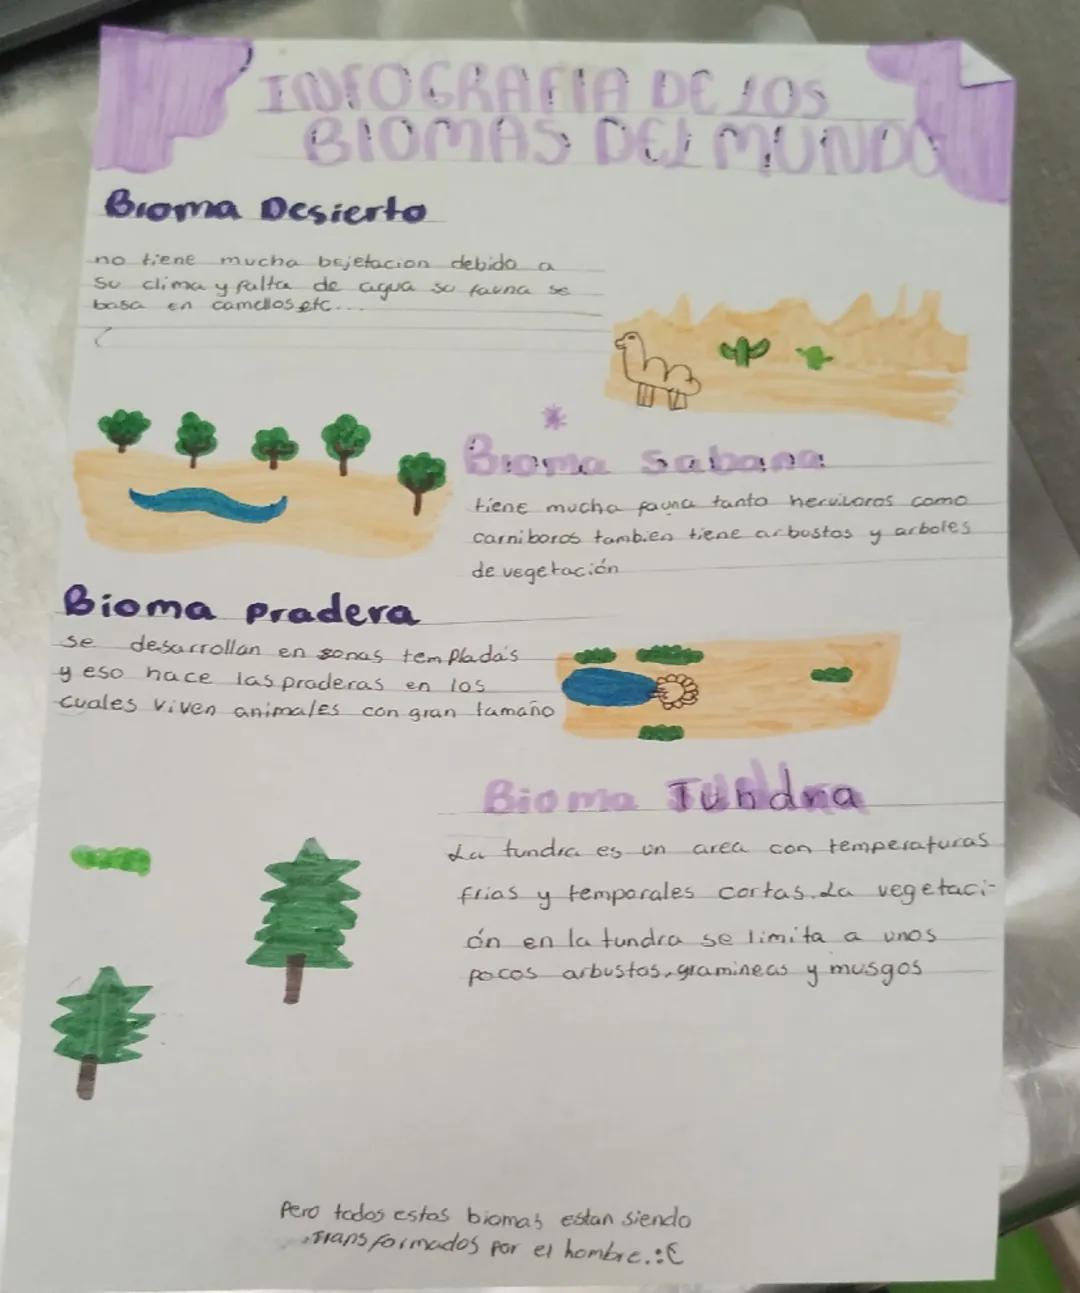 INFOGRAFIA DE LOS
BIOMAS DEL MUNDO
Bioma Desierto
no tiene mucha bejetacion debido a
su clima y falta de agua su fauna se
basa en camellos etc...
Bioma Sabana
tiene mucha fauna tanto hervivoros como
carniboros tambien tiene arbustos y arboles
de vegetación
Bioma pradera
se desarrollan en sonas templadas
y eso hace las praderas en los
cuales viven animales con gran tamaño
Bioma Tundra
La tundra es un area con temperaturas
frias y temporales cortas. La vegetaci-
ón en la tundra se limita a unos
pocos arbustos, gramineas y musgos
Pero todos estos biomas estan siendo
transformados por el hombre. :(